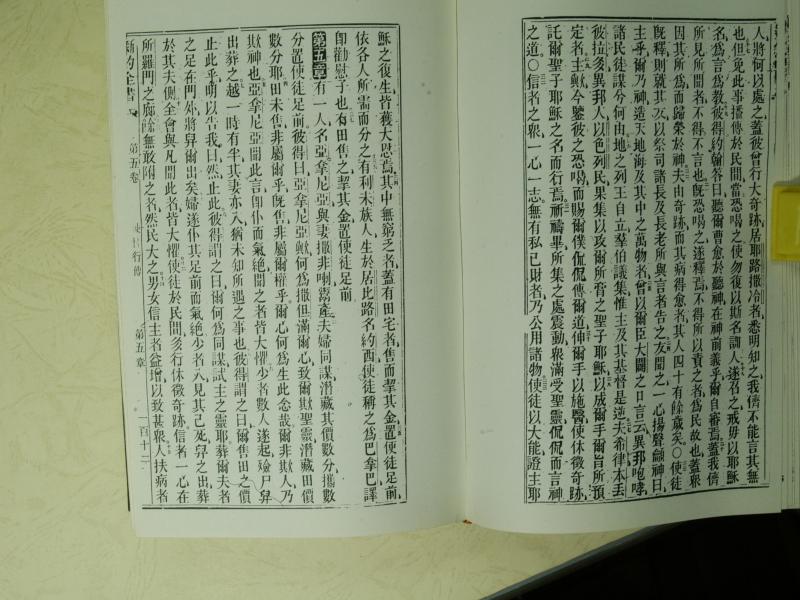 人將何以處之蓋彼曾行大奇跡居耶路撒冷者悉明知之我儕不能言其無
也但免此事播傳於民間當恐喝之使勿復以斯名訓人遂召之戒毋以耶穌
名為言為教彼得約翰答曰聽爾曹愈於聽神在神前義乎爾自審焉蓋我儕
所見所聞者不得不言也旣恐喝之遂釋焉不得所以責之者為民故也蓋衆
因其所為而歸榮於神夫由奇跡而其病得愈者其人四十有餘歲矣○使徒
旣釋則就其友以祭司諸長及長老所與言者告之友聞之一心揚聲籲神曰
主乎爾乃神造天地海及其中之萬物者曾以爾臣大闢之口言云異邦咆哮
諸民徒謀今何由地之列王自立羣伯議集惟主及其基督是逆夫希律本丟
彼拉多異邦人以色列民果集以攻爾所膏之聖子耶穌以成爾手爾旨所預
定者主與今鑒彼之恐喝而賜爾僕侃侃傳爾道伸爾手以施醫使休徵奇跡
託爾聖子耶穌之名而行焉祈禱畢所集之處震動衆滿受聖靈侃侃而言神
之道○信者之衆一心一志無有私己財者乃公用諸物使徒以大能證主耶
穌之復生皆獲大恩焉其中無窮乏者蓋有田宅者售而挈其金置使徒足前
依各人所需而分之有利未族人生於居比路名約西使徒稱之為巴拿巴譯
卽勸慰子也有田售之挈其金置使徒足前
第五章 有一人名亞拿尼亞與妻撒非喇鬻產夫婦同謀潛藏其價數分攜數
分置使徒足前彼得曰亞拿尼亞歟何為撒但滿爾心致爾欺聖靈潛藏田價
數分耶田未售非屬爾乎旣售非屬爾權乎爾心何為生此念哉爾非欺人乃
欺神也亞拿尼亞聞此言卽仆而氣絶聞之者皆大懼少者數人遂起殮尸舁
出葬之越一時有半其妻亦入猶未知所遇之事也彼得謂之曰爾售田之價
止此乎明以告我曰然止此彼得謂之曰爾何為同謀試主之靈耶葬爾夫者
之足在門外將舁爾出矣婦遂仆其足前而氣絶少者入見其已死舁之出葬
於其夫側全會與凡聞此者皆大懼使徒於民間多行休徵奇跡信者一心在
所羅門之廊餘無敢附之者然民大之男女信主者益增以致甚衆人扶病者
新約全書 第五卷 使徒行傳 第五章 一百十二